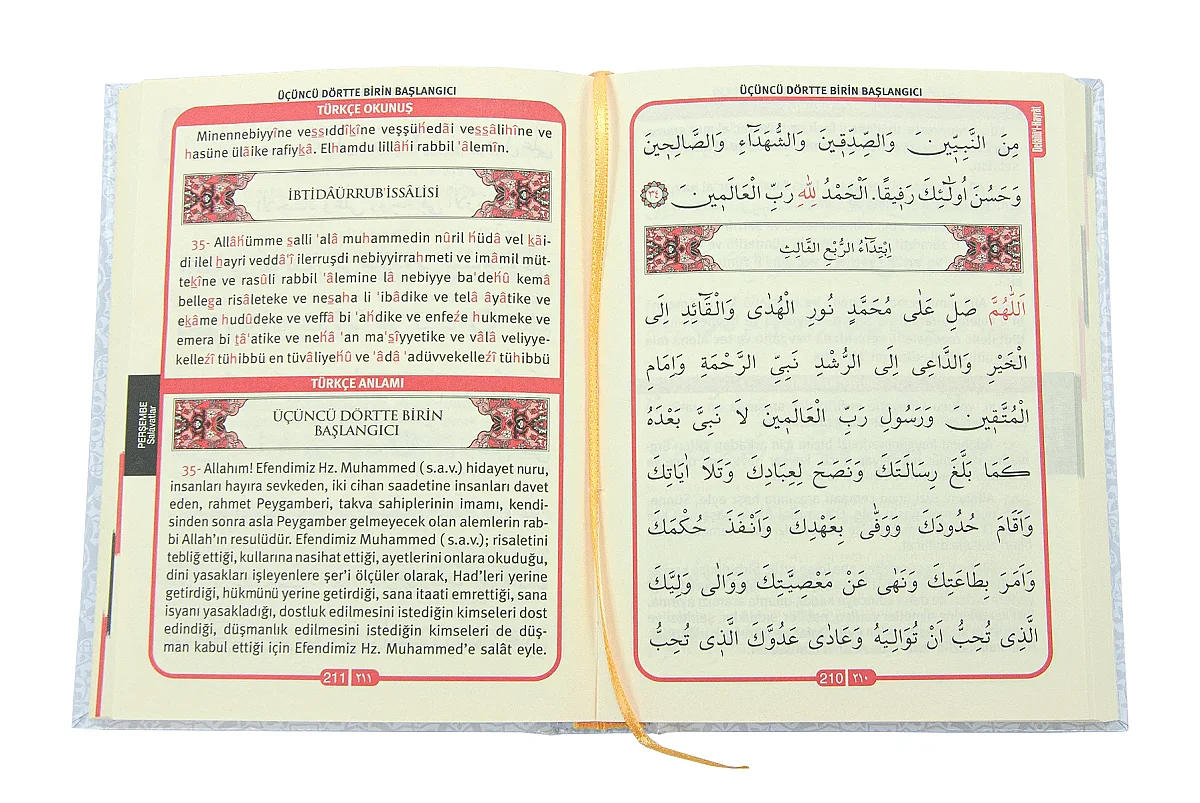 ÜÇÜNCÜ DÖRTTE BİRİN BAŞLANGICI
Delâilü'l-Hayrât
مِنَ النَّبِيّ۪ينَ وَالصِّدّ۪يق۪ينَ وَالشُّهَدَٓاءِ وَالصَّالِح۪ينَ
وَحَسُنَ اُولٰٓئِكَ رَف۪يقًا. اَلْحَمْدُ لِلّٰهِ رَبِّ الْعَالَم۪ينَ ٣٤
اِبْتِدَٓاءُ الرُّبْعِ الثَّالِثِ
اَللّٰهُمَّ صَلِّ عَلٰى مُحَمَّدٍ نُورِ الْهُدٰى وَالْقَٓائِدِ اِلَى
الْخَيْرِ وَالدَّاعِى اِلَى الرُّشْدِ نَبِىِّ الرَّحْمَةِ وَاِمَامِ
الْمُتَّق۪ينَ وَرَسُولِ رَبِّ الْعَالَم۪ينَ لَا نَبِىَّ بَعْدَهُ
كَمَا بَلَّغَ رِسَالَتَكَ وَنَصَحَ لِعِبَادِكَ وَتَلَا اٰيَاتِكَ
وَاَقَامَ حُدُودَكَ وَوَفّٰى بِعَهْدِكَ وَاَنْفَذَ حُكْمَكَ
وَاَمَرَ بِطَاعَتِكَ وَنَهٰى عَنْ مَعْصِيَتِكَ وَوَالٰى وَلِيَّكَ
الَّذ۪ى تُحِبُّ اَنْ تُوَالِيَهُ وَعَادٰى عَدُوَّكَ الَّذ۪ى تُحِبُّ
210 ٢١٠
ÜÇÜNCÜ DÖRTTE BİRİN BAŞLANGICI
TÜRKÇE OKUNUŞ
Minennebiyyîne vessıddîkîne veşşühedâi vessâlihîne ve
hasüne ülâike rafiykâ. Elhamdu lillâhi rabbil 'âlemîn.
İBTİDÂÜRRUB'İSSÂLİSİ
35- Allâhümme salli 'alâ muhammedin nûril hüdâ vel kâi-
di ilel hayri veddâ'î ilerruşdi nebiyyirrahmeti ve imâmil müt-
tekîne ve rasûli rabbil 'âlemine lâ nebiyye ba'dehû kemâ
bellega risâleteke ve nesaha li 'ibâdike ve telâ âyâtike ve
ekâme hudûdeke ve veffâ bi 'ahdike ve enfeze hukmeke ve
emera bi tâ'atike ve nehâ 'an ma'sîyyetike ve vâlâ veliyye-
kellezî tühibbü en tüvâliyehû ve 'âdâ 'adüvvekellezî tühibbü
TÜRKÇE ANLAMI
ÜÇÜNCÜ DÖRTTE BİRİN
BAŞLANGICI
35- Allahım! Efendimiz Hz. Muhammed (s.a.v.) hidayet nuru,
insanları hayıra sevkeden, iki cihan saadetine insanları davet
eden, rahmet Peygamberi, takva sahiplerinin imamı, kendi-
sinden sonra asla Peygamber gelmeyecek olan alemlerin rab-
bi Allah'ın resulüdür. Efendimiz Muhammed (s.a.v.); risaletini
tebliğ ettiği, kullarına nasihat ettiği, ayetlerini onlara okuduğu,
dini yasakları işleyenlere şer'i ölçüler olarak, Had'leri yerine
getirdiği, hükmünü yerine getirdiği, sana itaati emrettiği, sana
isyanı yasakladığı, dostluk edilmesini istediğin kimseleri dost
edindiği, düşmanlık edilmesini istediğin kimseleri de düş-
man kabul ettiği için Efendimiz Hz. Muhammed'e salât eyle.
PERŞEMBE
Salavatlar
211 ٢١١